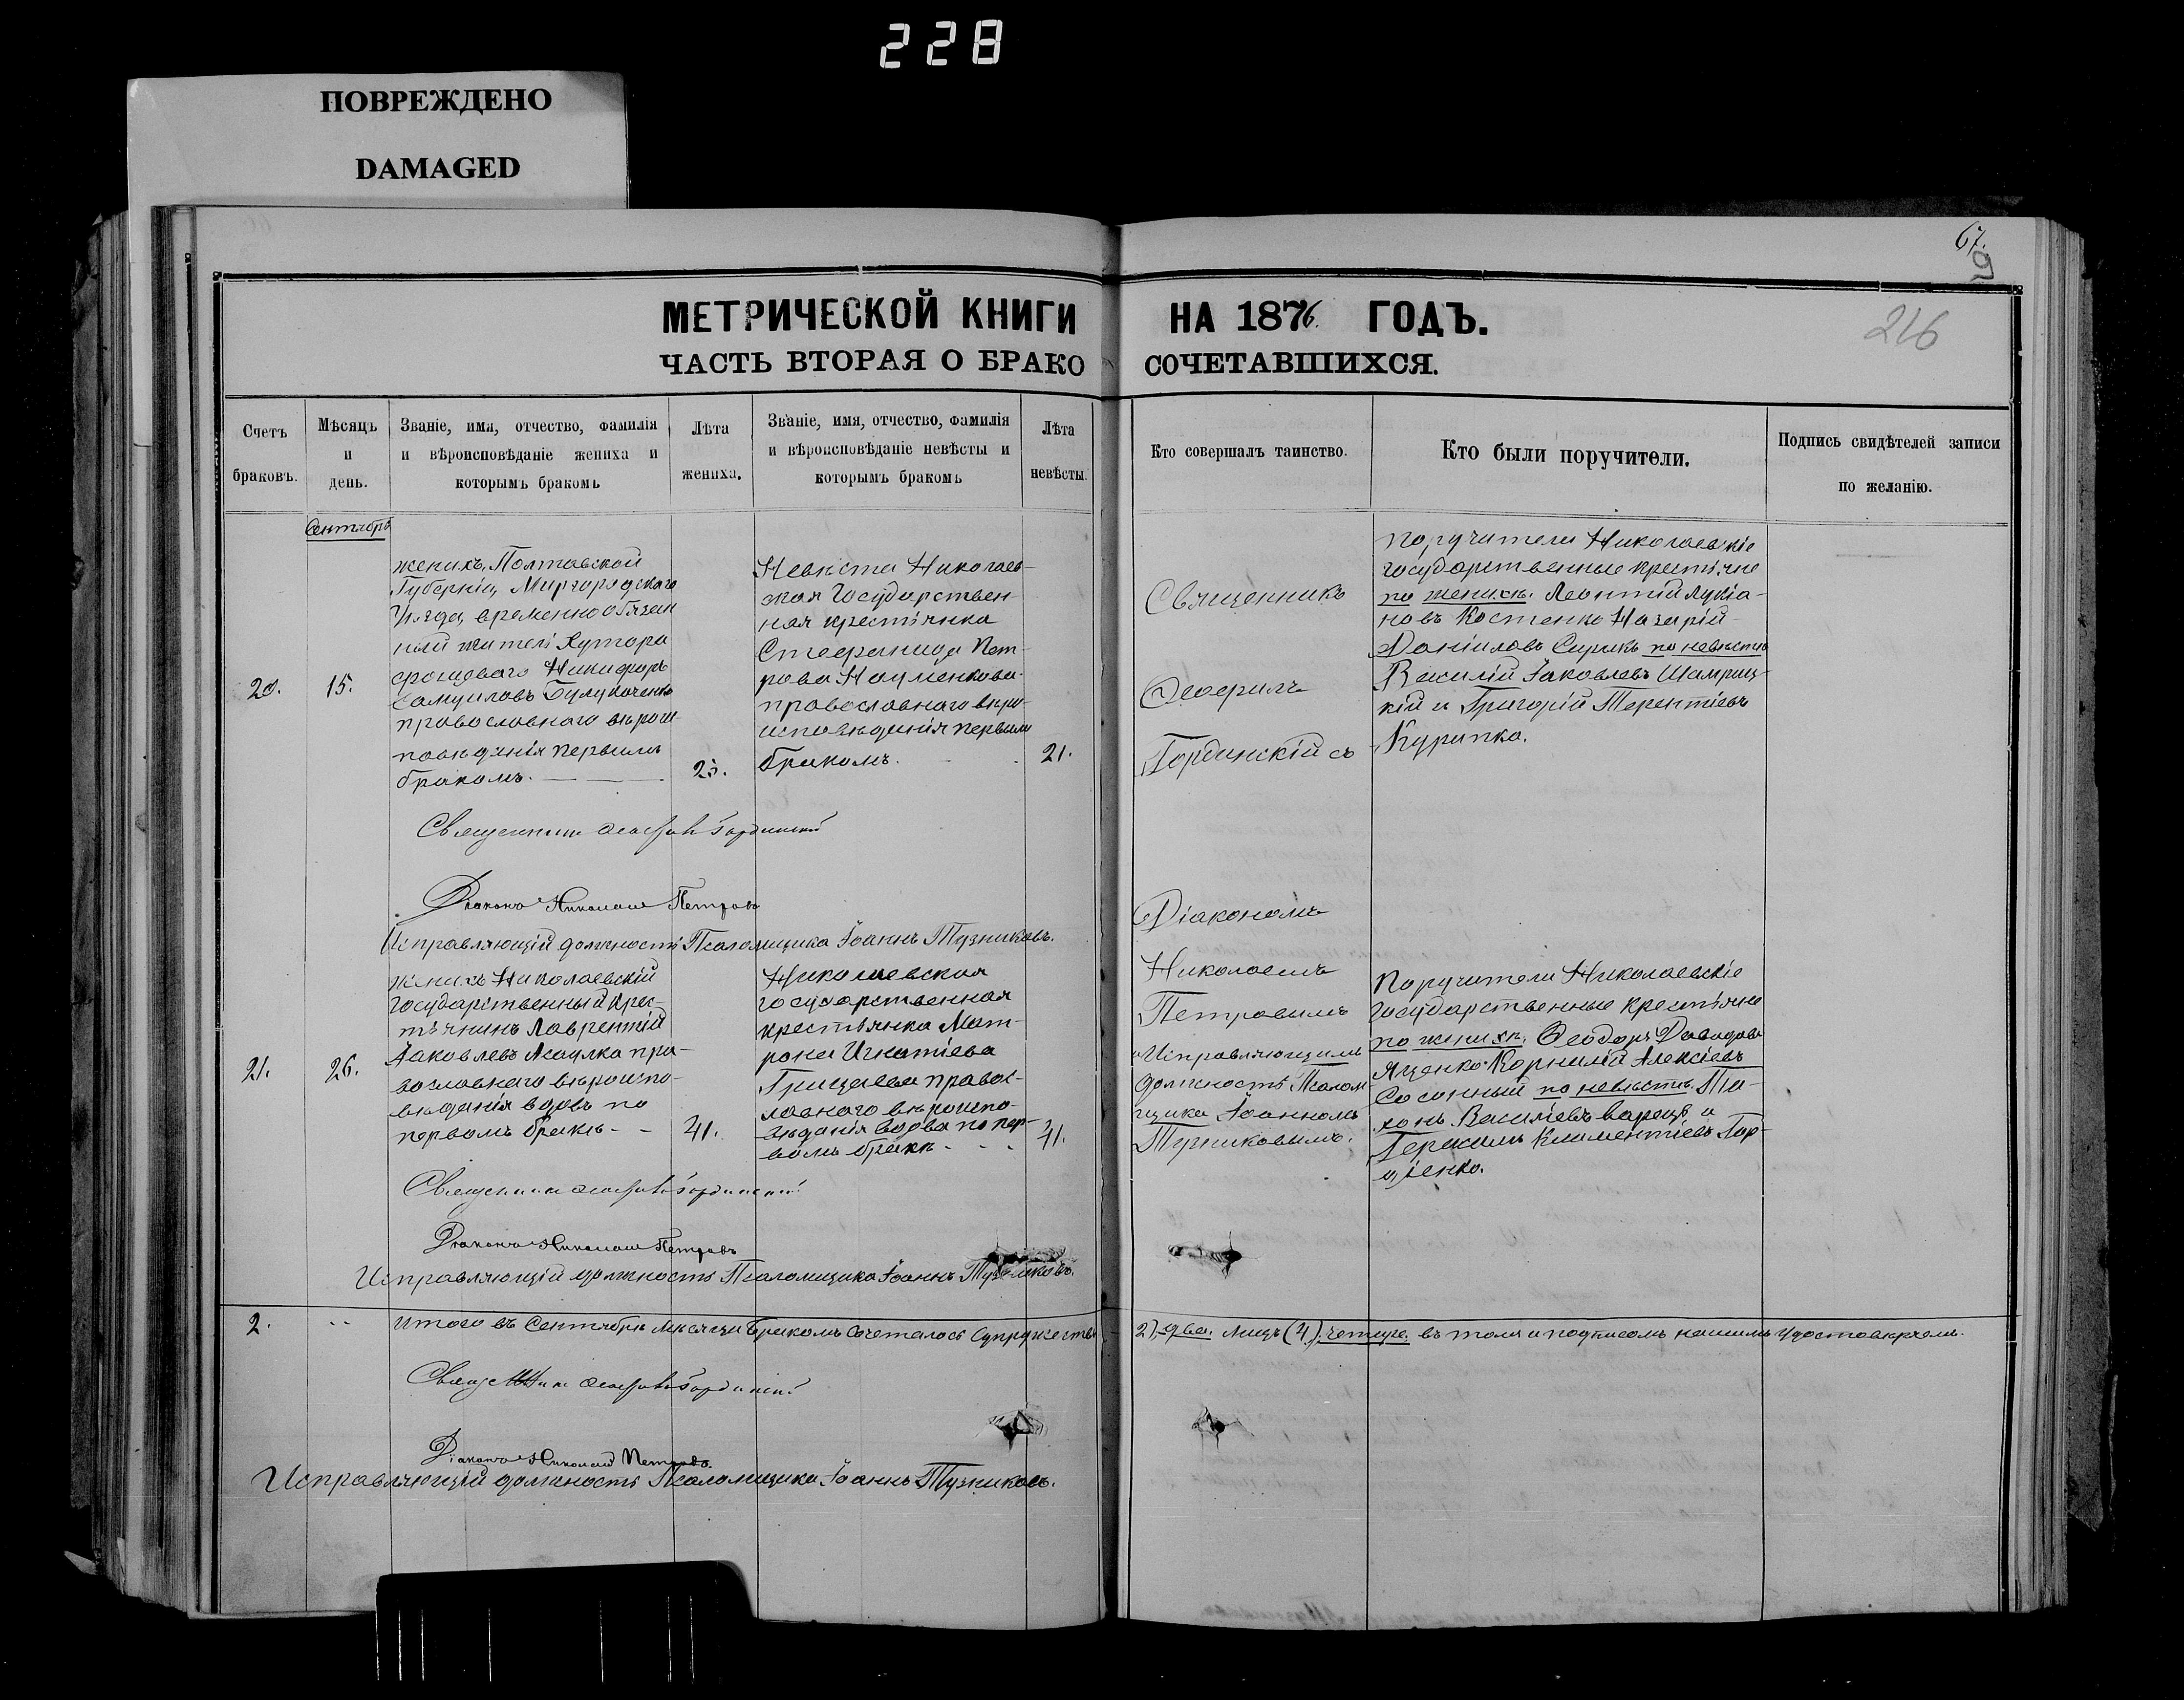 228
ПОВРЕЖДЕНО
DAMAGED
67.
216
МЕТРИЧЕСКОЙ КНИГИ НА 1876. ГОДЪ.
ЧАСТЬ ВТОРАЯ О БРАКОСОЧЕТАВШИХСЯ.
Счетъ браковъ.
Мѣсяцъ и день.
Званіе, имя, отчество, фамилія
и вѣроисповѣданіе жениха и
которымъ бракомъ
Лѣта жениха.
Званіе, имя, отчество, фамилія
и вѣроисповѣданіе невѣсты и
которымъ бракомъ
Лѣта невѣсты.
Кто совершалъ таинство.
Кто были поручители.
Подпись свидѣтелей записи
по желанію.
Сентябрь
20.
15.
женихъ, Полтавской
Губерніи, Миргородскаго
Уѣзда, временно обязан
ный житель Хутора
Никифоръ
Самуиловъ
православнаго вѣрои-
повѣданія первымъ
бракомъ.
Невѣста Николаев-
ская Государствен-
ная крестьянка
Стефанида Пет-
рова Науменкова
православнаго вѣро-
исповѣданія первымъ
бракомъ.
21.
Священникъ
Ѳеофилъ
Гординскій съ
Поручители Николаевскіе
государственные крестьяне
по женихѣ. Леонтій Лукіа-
новъ Костенко Назарій
Даніиловъ Сирикъ по невѣстѣ
Василій Іаковлевъ Шамриц-
кій и Григорій Терентіевъ
Курипка.
Священникъ Ѳеофилъ Гординскій
Діаконъ Николай Петровъ
Исправляющій должность Псаломщика Іоаннъ Тузниковъ.
21.
26.
женихъ Николаевскій
Государственный Крес-
тьянинъ Лаврентій
Іаковлевъ пра-
вославнаго вѣроиспо-
вѣданія вдовъ по
первомъ бракѣ
41.
Николаевская
государственная
крестьянка Мат-
рона Игнатіева
Грицаева правос-
лавнаго вѣроиспо-
вѣданія вдова по пер-
вомъ бракѣ
41.
Діакономъ
Николаемъ
Петровымъ
и Исправляющимъ
должность Псалом-
щика Іоанномъ
Тузниковымъ.
Поручители Николаевскіе
Государственные Крестьяне
по женихѣ. Ѳеодоръ Давидовъ
Яценко Корнилій Алексіевъ
по невѣстѣ.
Василіевъ и
Герасимъ Климентіевъ Гор-
діенко.
Священникъ Ѳеофилъ Гординскій
Діаконъ Николай Петровъ
Исправляющій должность Псаломщика Іоаннъ Тузниковъ.
2.
Итого въ Сентябрѣ мѣсяцѣ бракомъ сочеталось супружествъ 2) два. лицъ (4). четыре. въ томъ и подписомъ нашимъ удостовѣряемъ.
Священникъ Ѳеофилъ Гординскій
Діаконъ Николай Петровъ.
Исправляющій должность Псаломщика Іоаннъ Тузниковъ.